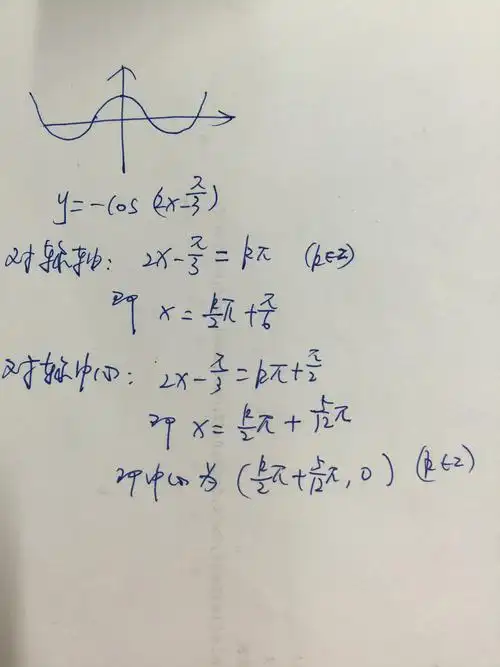 y=-cos(2x-π/3)
对称轴: 2x-π/3=kπ (k∈z)
即 x=k/2π+π/6
对称中心: 2x-π/3=kπ+π/2
即 x=k/2π+5/12π
即中心为(k/2π+5/12π,0) (k∈z)